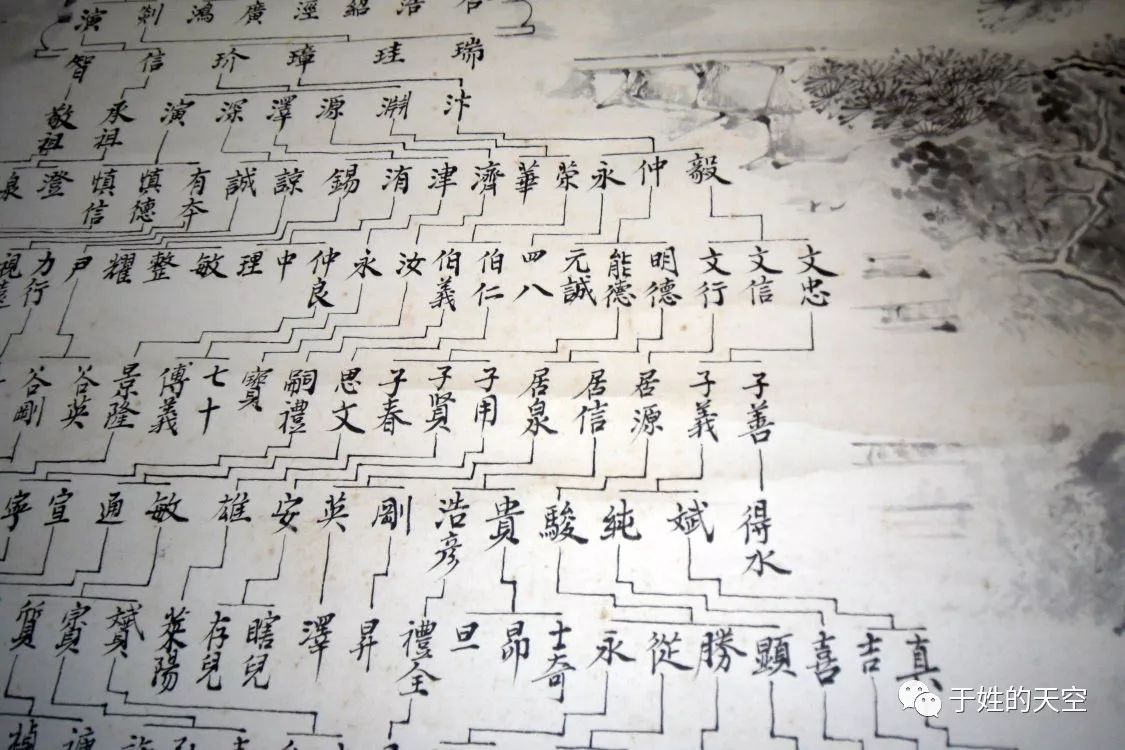 浩 紹 涇 廣 鴻 劍 演
瑞 珪 璋 玠 信 智
汴 淵 源 澤 深 演 承祖 敬祖
毅 仲 永 榮 華 濟 津 洧 錫 諒 誠 有夲 慎德 慎信 澄 泉
文忠 文信 文行 明德 能德 元誠 四八 伯仁 伯義 汝 永 仲良 中 理 敏 整 耀 尹 力行
子善 子義 居源 居信 居泉 子用 子賢 子春 思文 嗣禮 寶 七十 傅義 景隆 谷英 谷剛
得水 斌 純 駿 貴 浩彥 剛 英 安 雄 敏 通 宣 寧
真 吉 喜 顯 勝 從 永 士奇 昂 旦 禮全 昇 澤 瞎兒 存兒 萊陽 贇 賓 質
于姓的天空